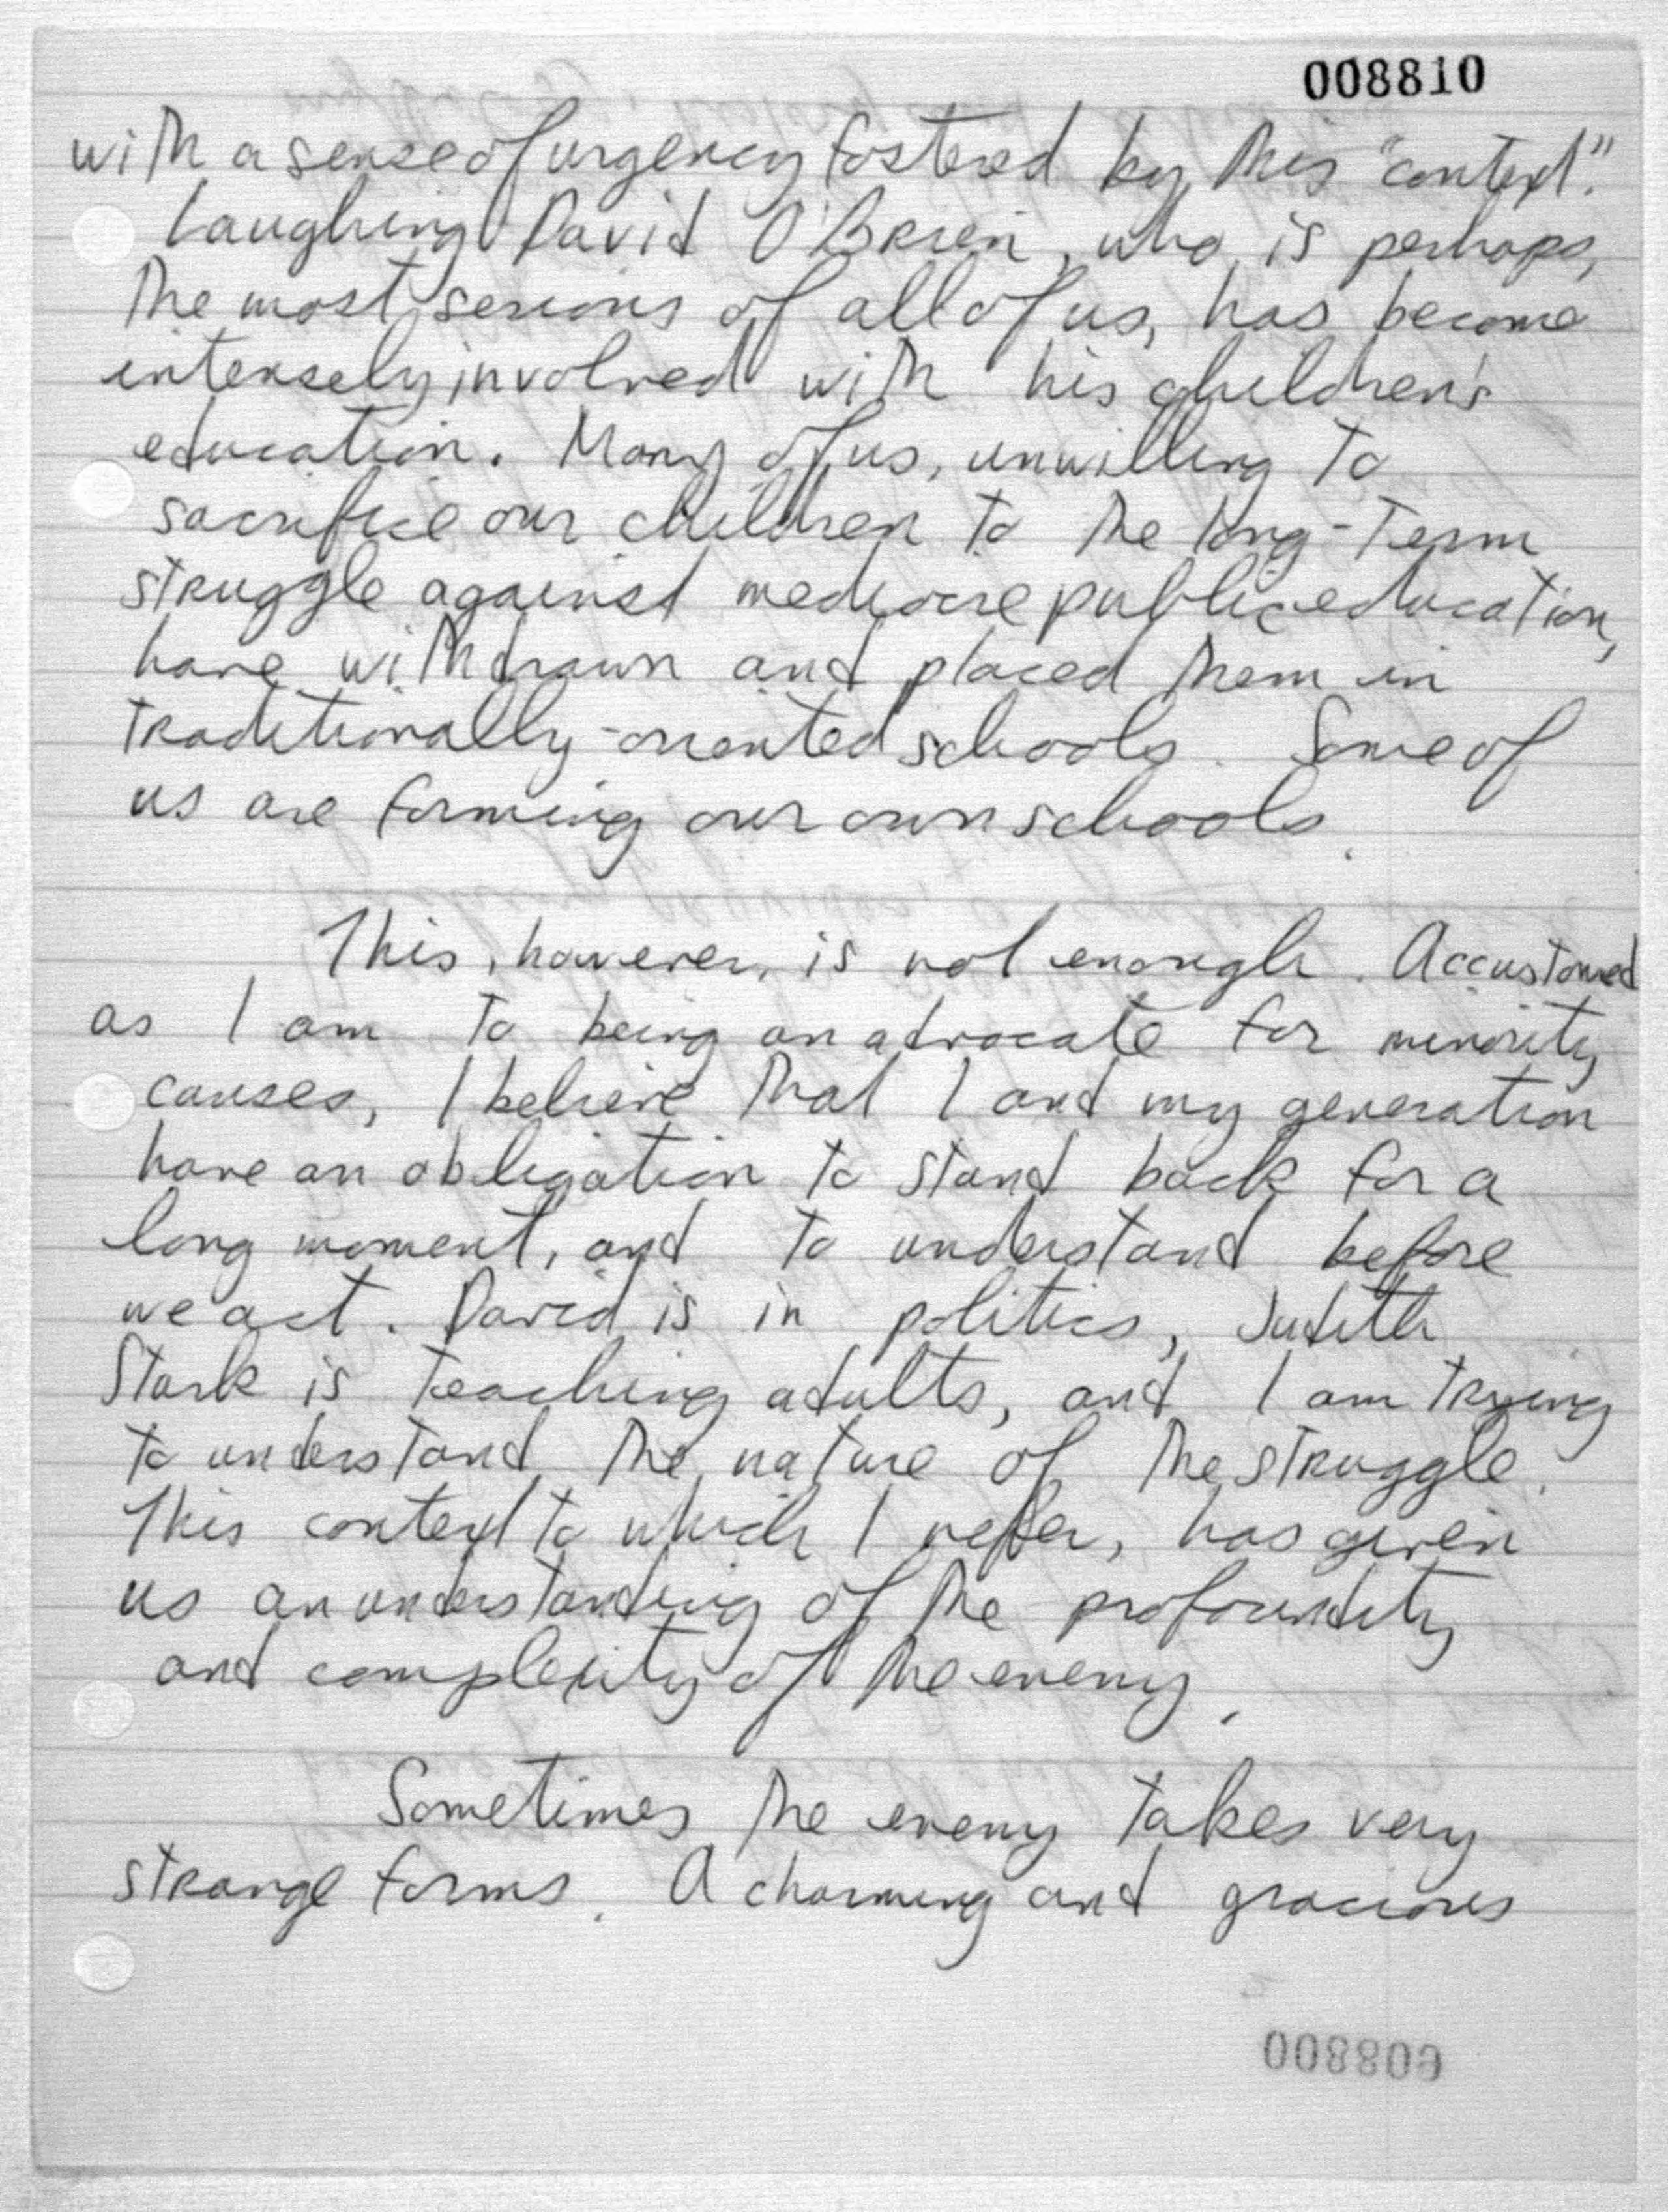 008810
with a sense of urgency fostered by this "context".
Laughing David O'Brien, who is perhaps,
the most serious of all of us, has become
intensely involved with his children's
education. Many of us, unwilling to
sacrifice our children to the long-term
struggle against mediocre public education,
have withdrawn and placed them in
traditionally-oriented schools. Some of
us are forming our own schools.
This, however, is not enough. Accustomed
as I am to being an advocate for minority
causes, I believe that I and my generation
have an obligation to stand back for a
long moment, and to understand before
we act. David is in politics, Judith
Stark is teaching adults, and I am trying
to understand the nature of the struggle.
This context to which I refer, has given
us an understanding of the profoundity
and complexity of the enemy.
Sometimes the enemy takes very
strange forms. A charming and gracious
008809